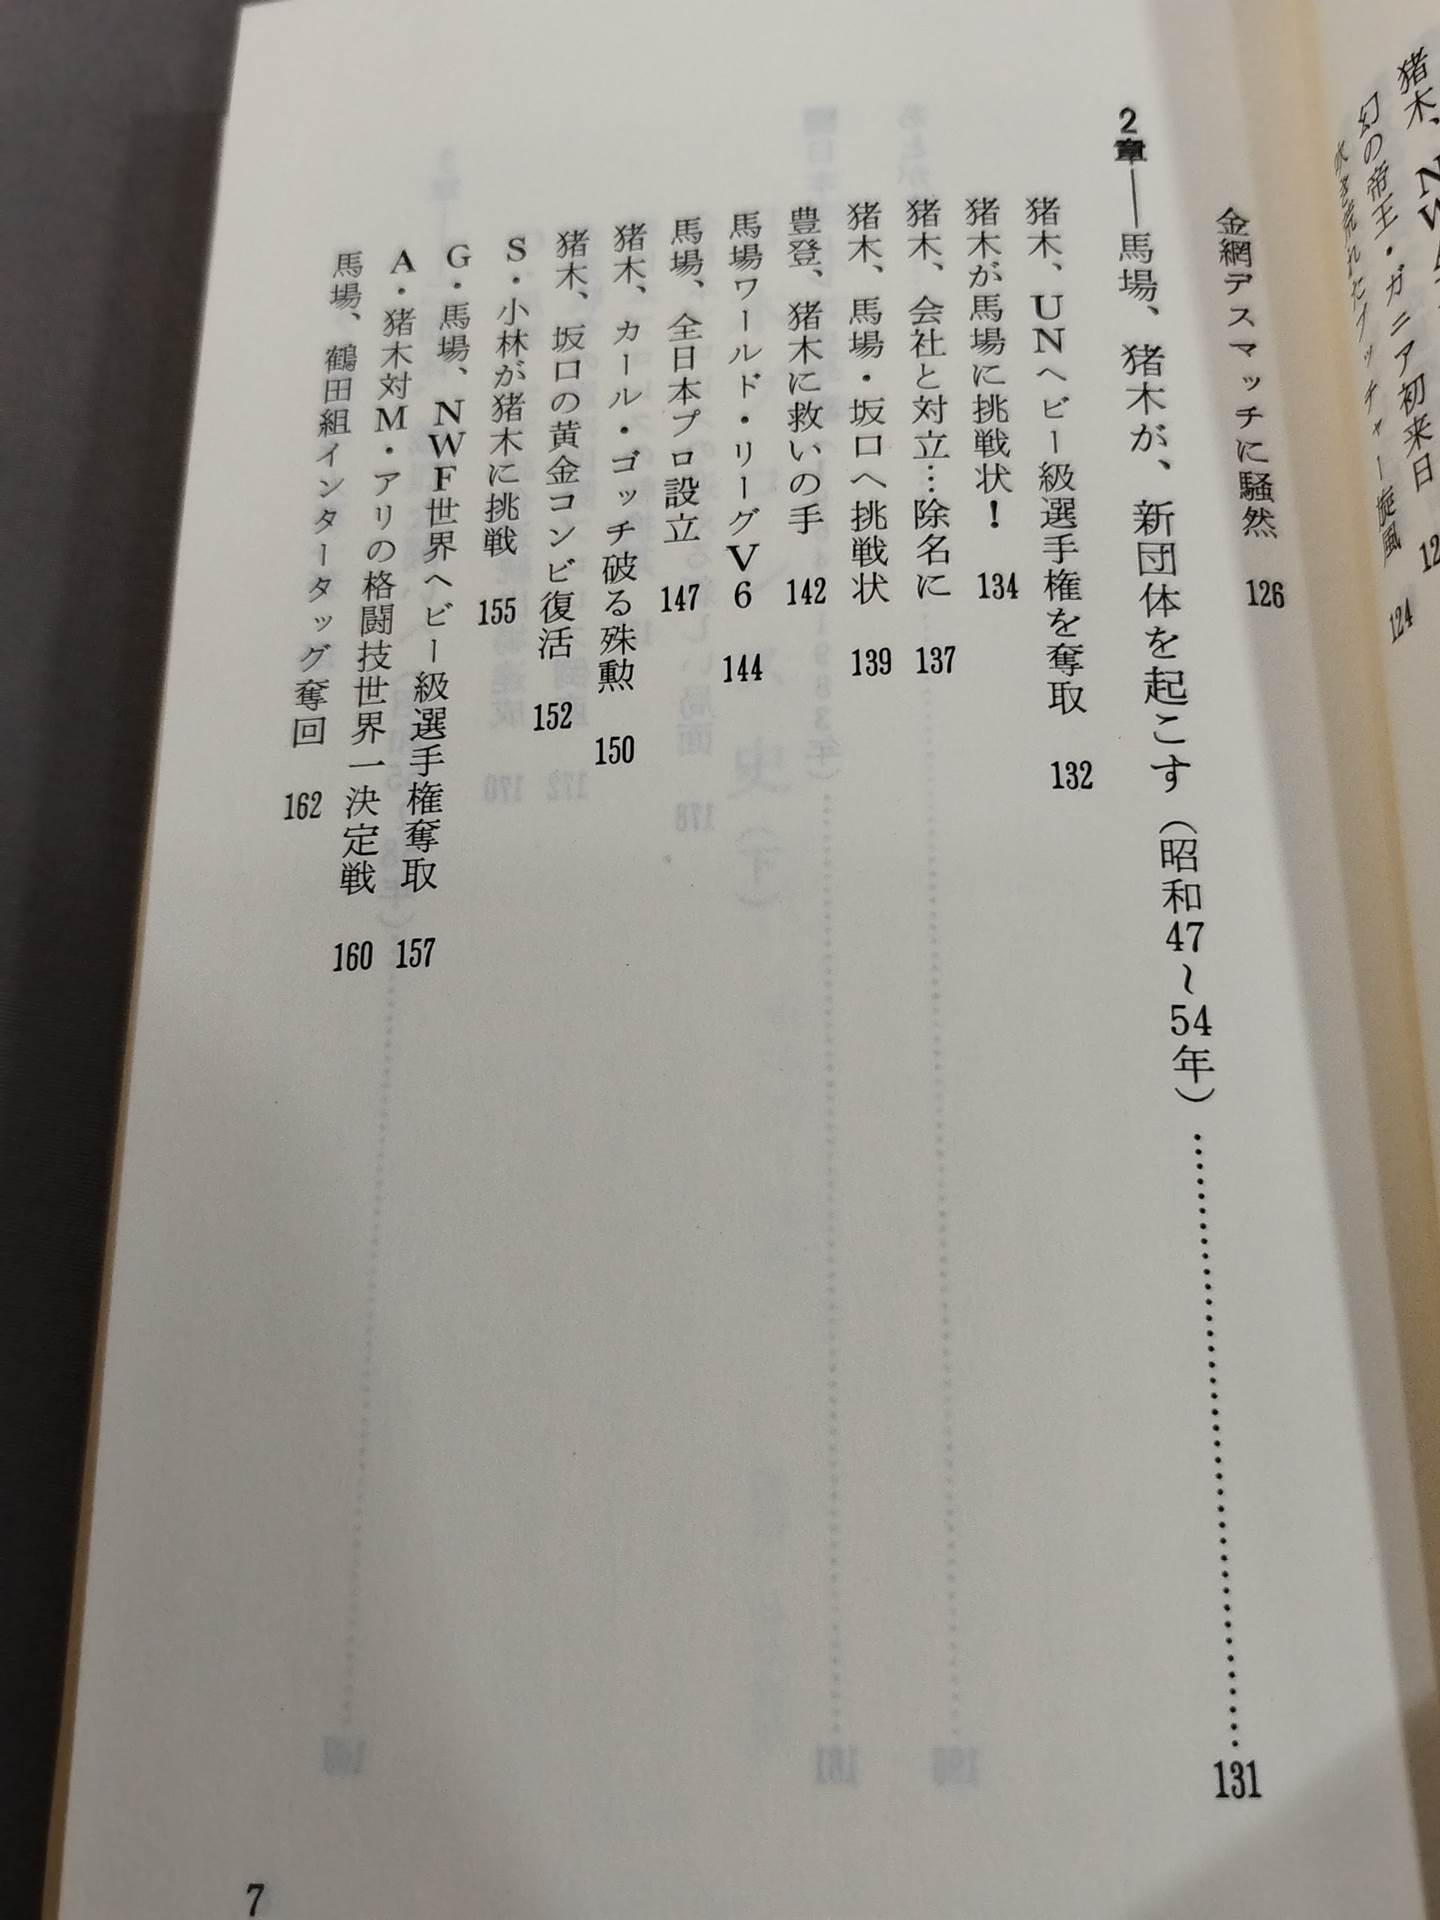 猪木、NWA
12
幻の帝王・ガニア初来日
吹き荒れたブッチャー旋風 124
金網デスマッチに騒然 126
2章――馬場、猪木が、新団体を起こす（昭和47～54年）……………………131
猪木、UNヘビー級選手権を奪取 132
猪木が馬場に挑戦状！ 134
猪木、会社と対立…除名に 137
猪木、馬場・坂口へ挑戦状 139
豊登、猪木に救いの手 142
馬場ワールド・リーグV6 144
馬場、全日本プロ設立 147
猪木、カール・ゴッチ破る殊勲 150
猪木、坂口の黄金コンビ復活 152
S・小林が猪木に挑戦 155
G・馬場、NWF世界ヘビー級選手権奪取 157
A・猪木対M・アリの格闘技世界一決定戦 160
馬場、鶴田組インタータッグ奪回 162
7